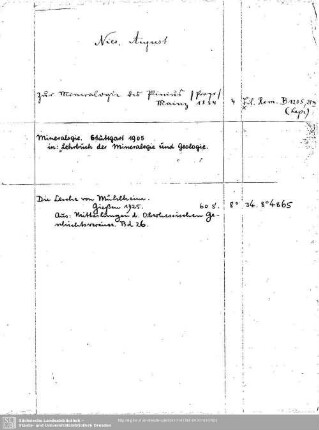 Nies, August
Zur Mineralogie des Plinius /Progr/
Mainz 1884 4 Lit. Rom. B 1205,
Mineralogie. Stuttgart 1905
in: Lehrbuch der Mineralogie und Geologie.
Die Kirche von
Gießen 1925. 60 S. 8° 34. 8° 4865
Aus: Mitteilungen d. Oberhessischen Ge-
schichtsvereins. Bd 26.
Sächsische Landesbibliothek -
Staats- und Universitätsbibliothek Dresden